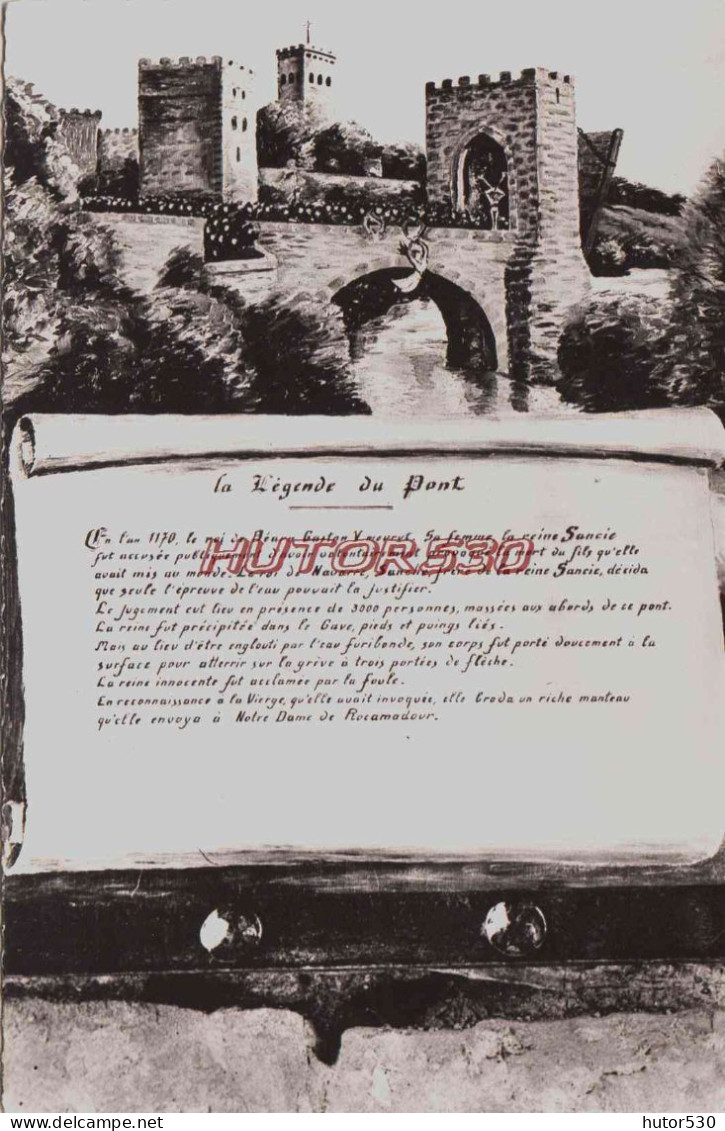 la Légende du Pont
En l'an 1170, le roi de Béarn Gaston V meurt. Sa femme, la reine Sancie
fut accusée publiquement d'avoir volontairement provoqué la mort du fils qu'elle
avait mis au monde. Le roi de Navarre, Sancho, frère de la reine Sancie, décida
que seule l'épreuve de l'eau pouvait la justifier.
Le jugement eut lieu en présence de 3000 personnes, massées aux abords de ce pont.
La reine fut précipitée dans le Gave, pieds et poings liés.
Mais au lieu d'être englouti par l'eau furibonde, son corps fut porté doucement à la
surface pour atterrir sur la grève à trois portées de flèche.
La reine innocente fut acclamée par la foule.
En reconnaissance a la Vierge, qu'elle avait invoquée, elle broda un riche manteau
qu'elle envoya à Notre Dame de Rocamadour.
HUTOR530
hutor530